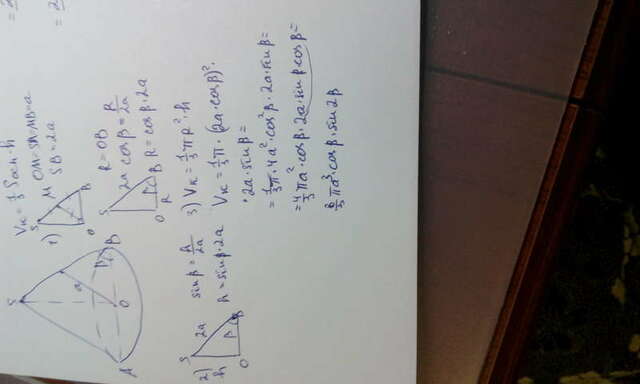 Vк = 1/3 Sосн · h
1) OM=SM=MB=a
SB = 2a
R = OB
cos β = R/2a
R = cos β · 2a
2) sin β = h/2a
h = sin β · 2a
3) Vк = 1/3 π R² · h
Vк = 1/3 π · (2a · cos β)² ·
· 2a · sin β =
= 1/3 π · 4a² · cos² β · 2a · sin β =
= 4/3 π a² · cos β · 2a · sin β cos β =
π a³ · cos β · sin 2β